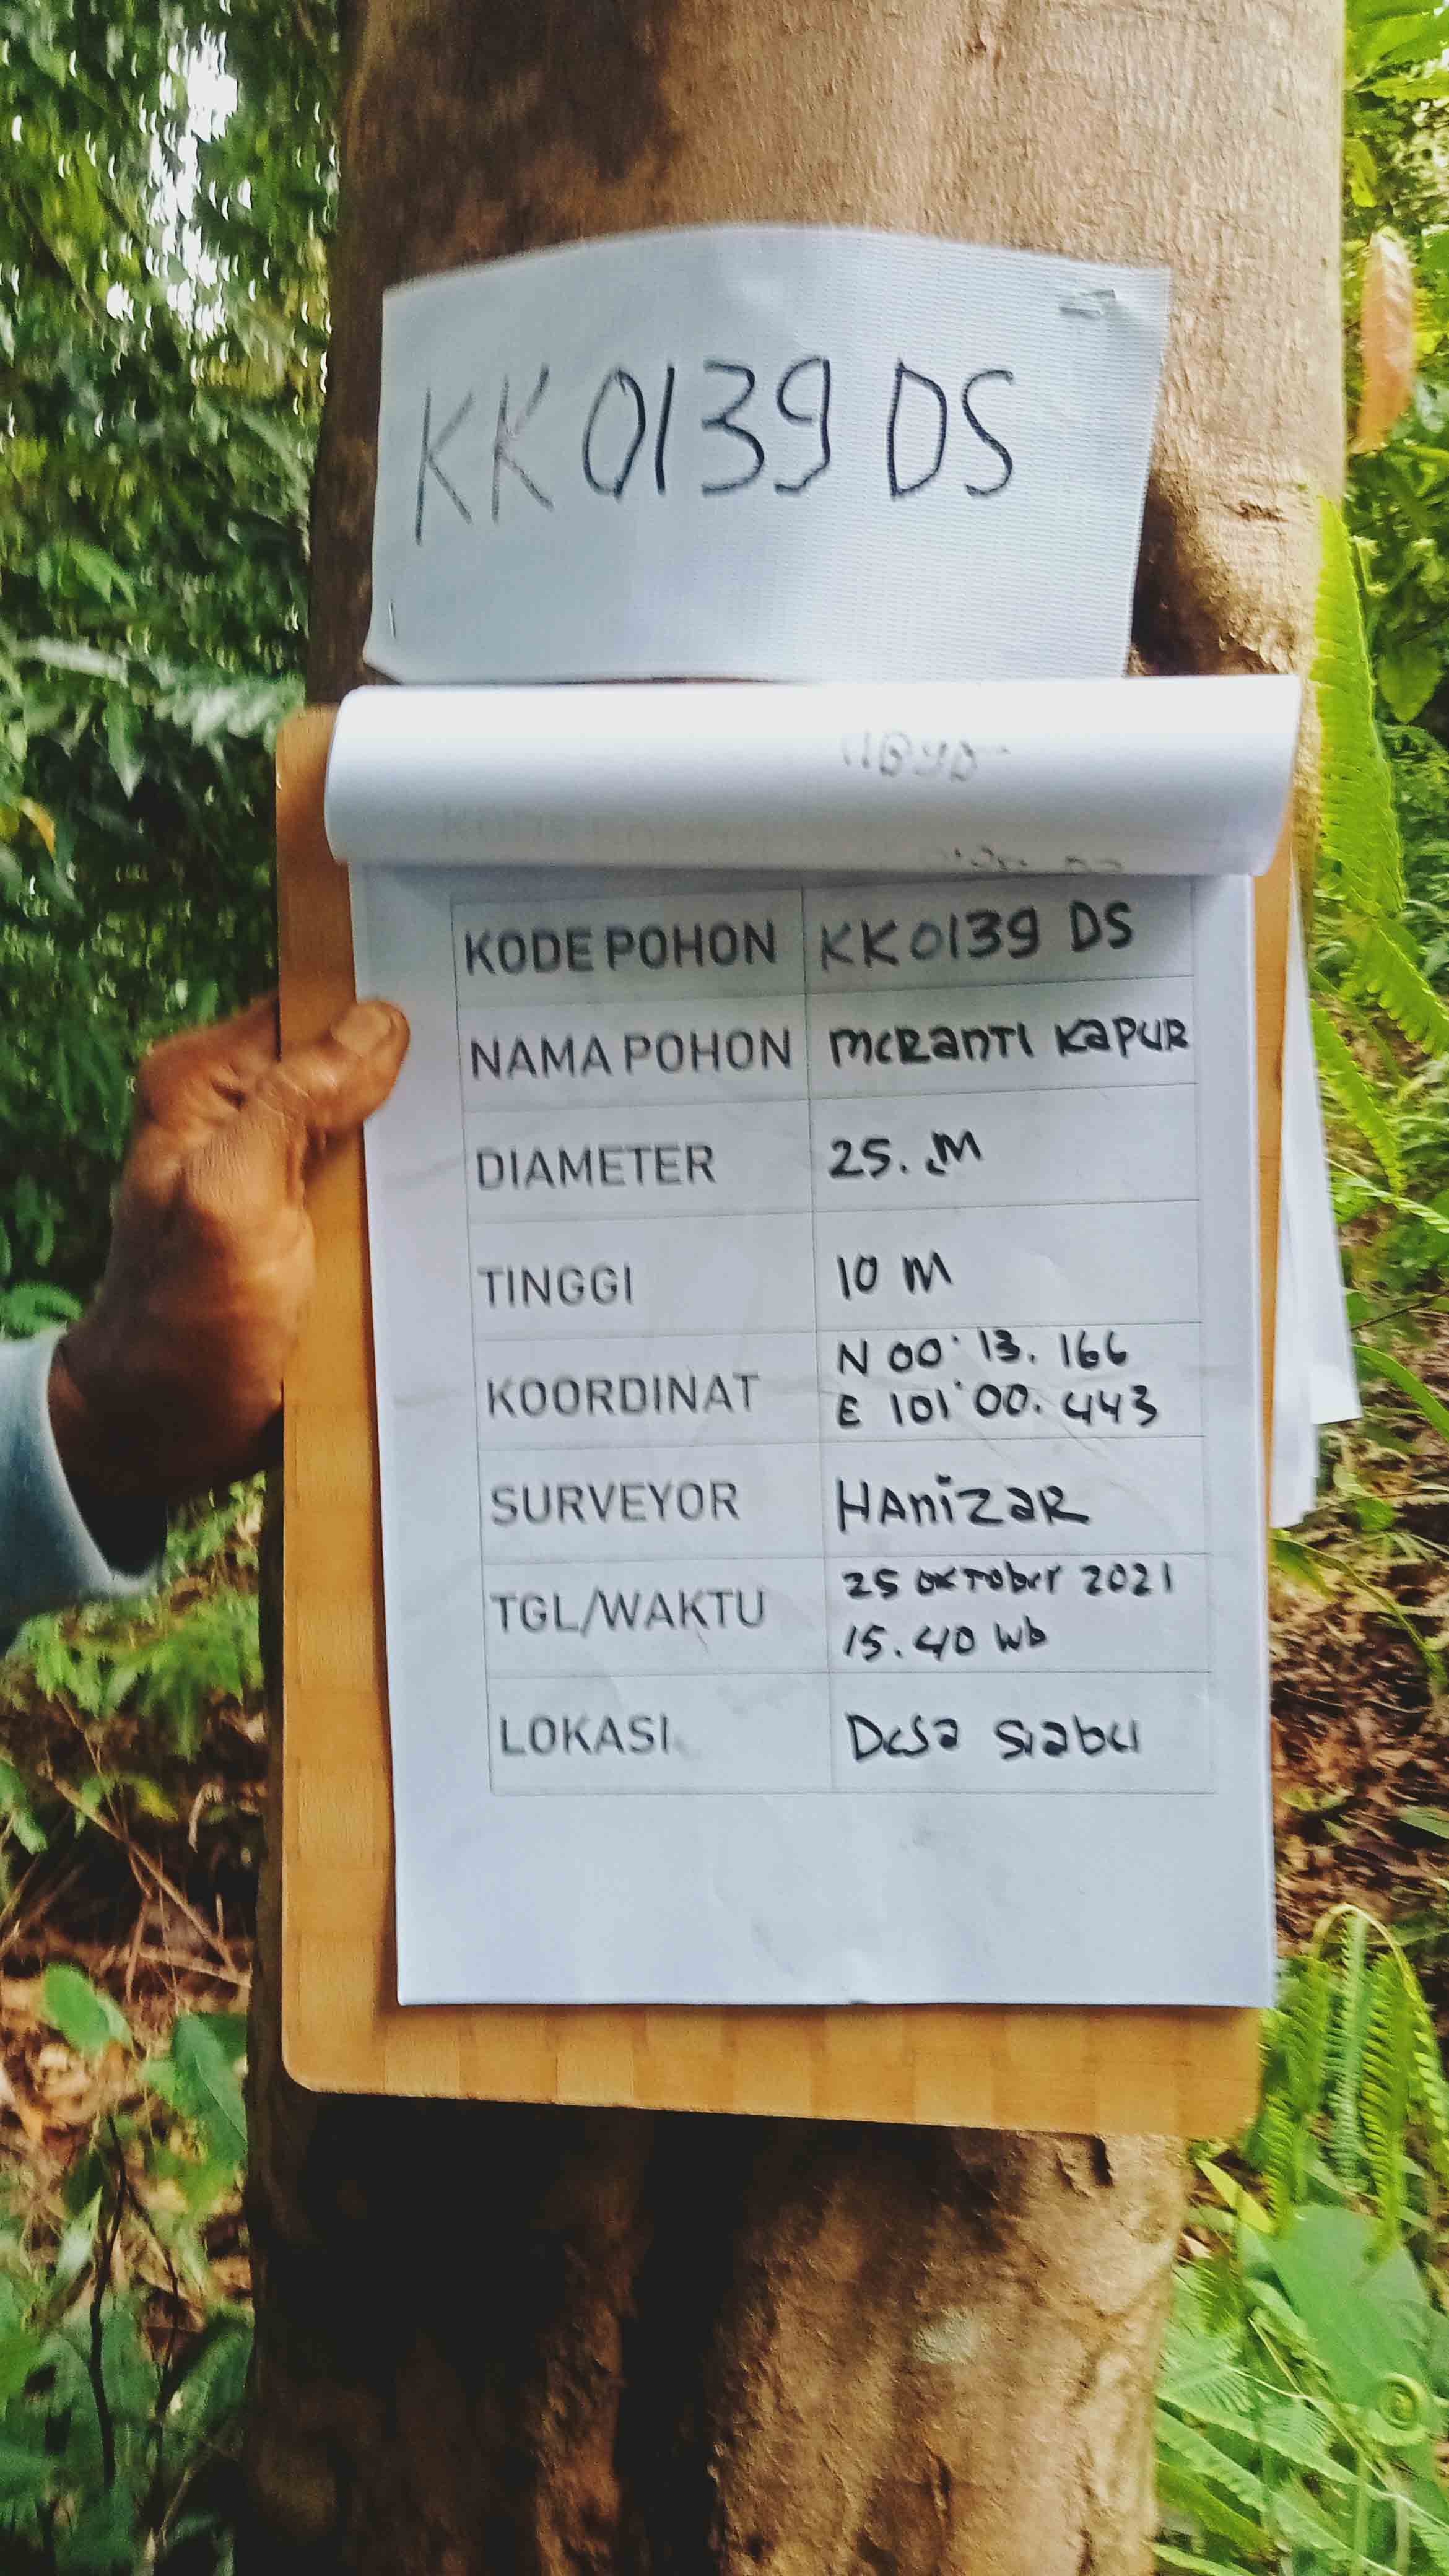 KK0139 DS
KODE POHON KK0139 DS
NAMA POHON MERANTI KAPUR
DIAMETER 25. M
TINGGI 10 M
KOORDINAT N 00° 13. 166
E 101° 00. 443
SURVEYOR HANIZAR
TGL/WAKTU 25 OKTOber 2021
15.40 Wb
LOKASI Desa Siabu